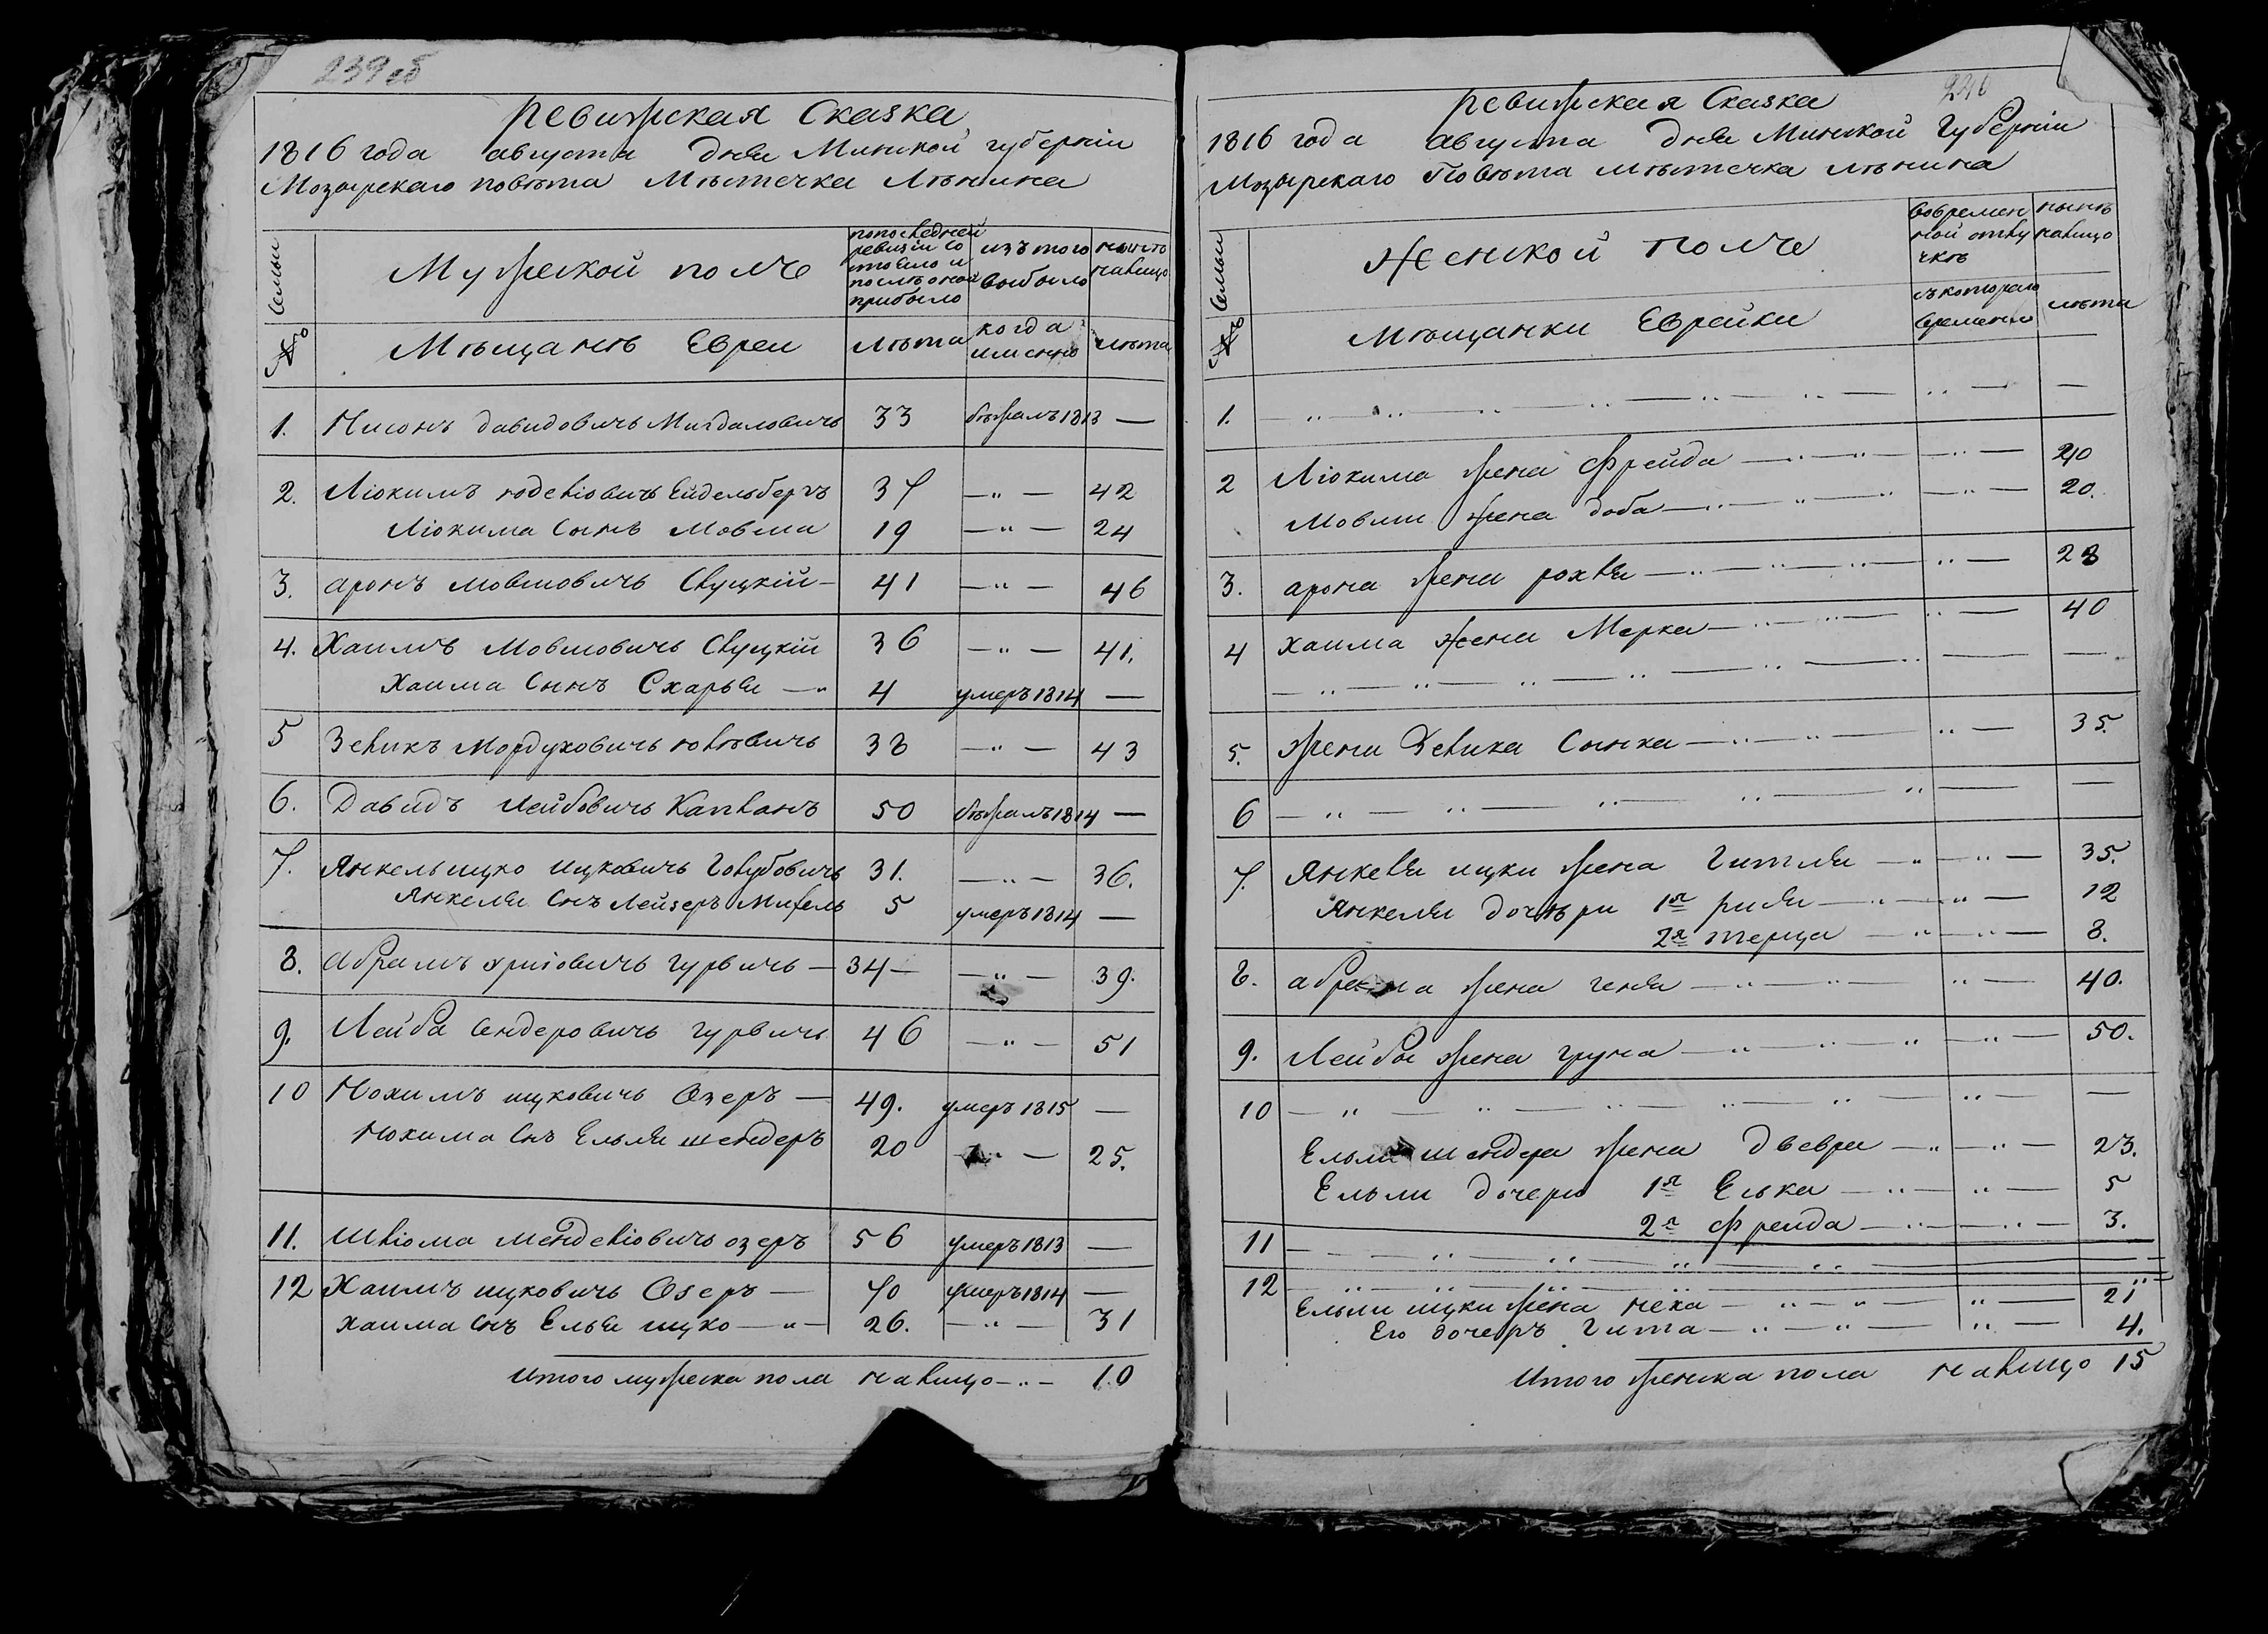 239 об
Ревижская Сказка
1816 года августа дня Минской губернiи
Мозырскаго повѣта Мѣстечка Лѣнина
Семьи
Мужеской полъ
по последней ревизiи состояло и послѣ оной прибыло
изъ того выбыло
нынѣ налицо
№
Мѣщанѣ Евреи
лѣта
когда именно
лѣта
1. Нисонъ Давидовичъ Мигдаловичъ 33 бѣжалъ 1813 —
2. Лiокимъ Юделiовичъ Ейдельбергъ 37 — " — 42
Лiокима Сынъ Мовша 19 — " — 24
3. Аронъ Мовшовичъ Слуцкiй — 41 — " — 46
4. Хаимъ Мовшовичъ Слуцкiй 36 — " — 41.
Хаима Сынъ Схарья — " 4 умеръ 1814 —
5 Зеликъ Мордуховичъ Юлѣвичъ 38 — " — 43
6. Давидъ Лейбовичъ Капланъ 50 бѣжалъ 1814 —
7. Янкель ицко ицковичъ Голубовичъ 31. — " — 36.
Янкеля Снъ Лейзеръ Михель 5 умеръ 1814 —
8. Абрамъ Орiовичъ Гурвичъ — 34 — — " — 39.
9. Лейба Сендеровичъ Гурвичъ 46 — " — 51
10 Нохимъ ицковичъ Озеръ — 49. умеръ 1815 —
Нохима Снъ Ельля шендеръ 20 — " — 25.
11. Шлiома Менделiовичъ озеръ 56 умеръ 1813 —
12 Хаимъ ицковичъ Озеръ — 70 умеръ 1814 —
Хаима Снъ Елья ицко — " — 26. — " — 31
Итого мужеска пола налицо — " — 10
240
Ревижская Сказка
1816 года августа дня Минской Губернiи
Мозырскаго Повѣта мѣстечка лѣнина
Семьи
Женской полъ
во временной отлучкѣ
нынѣ налицо
№
Мѣщанки Еврейки
съ котораго времени
лѣта
1. — " — " — " — " — " — —
2 Лiокима жена Фрейда — " — " — " — 40
Мовши жена Доба — " — " — " — 20.
3. арона жена рохля — " — " — " — 28
4 хаима жена Мерка — " — " — " — 40
— " — " — " — " — " — —
5. жена Зелика Сынка — " — " — " — 35.
6 — " — " — " — " — " — —
7. Янкеля ицки жена Гитля — " — " — 35.
Янкеля дочѣри 1я рися — " — " — 12
2я терца — " — " — 8.
8. абрама жена геня — " — " — " — 40.
9. Лейбы жена груна — " — " — " — 50.
10 — " — " — " — " — " — " — —
Ельли шендера жена Двевра — " — " — 23.
Ельли дочери 1я Елька — " — " — 5
2я Фрейда — " — " — 3.
11 — — " — " — " — " —
12 — " — " — " — " — "
Ельли ицки жена неха — " — " — " — 21
Его дочеръ Гита — " — " — " — 4.
Итого женска пола налицо 15